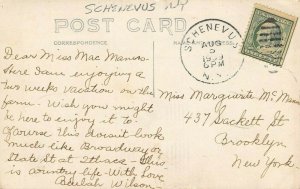 SCHENEVUS NY
POST CARD
CORRESPONDENCE
SCHENEVU
AUG
5
6PM
N.Y.
Dear Miss Mac Manus
Here I am enjoying a
two weeks vacation on the
farm. Wish you might
be here to enjoy it too.
Of course this doesn't look
much like Broadway or
State St at Ithaca - This
is country life - With Love
Beulah Wilson
Miss Marguerite Mc Manus
437 Sackett St
Brooklyn
New York